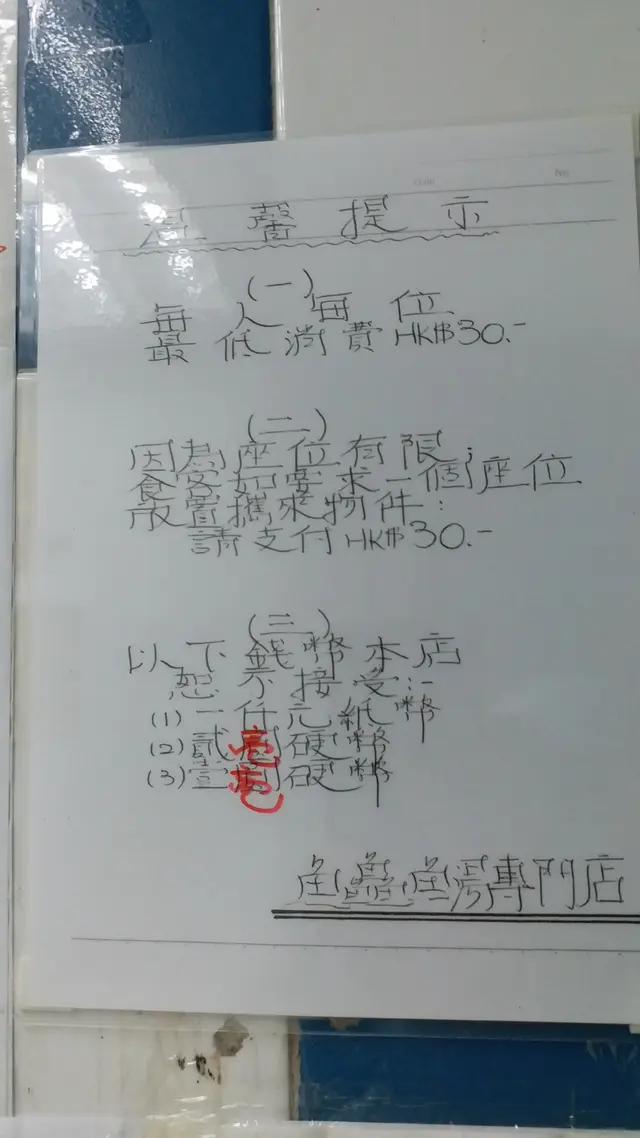 溫馨提示
(一)
每人每位
最低消費HK$30.-
(二)
因為座位有限;
食客如要求一個座位
放置攜來物件:
請支付HK$30.-
(三)
以下錢幣本店
恕不接受:-
(1)一仟元紙幣
(2)貳毫硬幣
(3)壹毫硬幣
魚鱻魚湯專門店